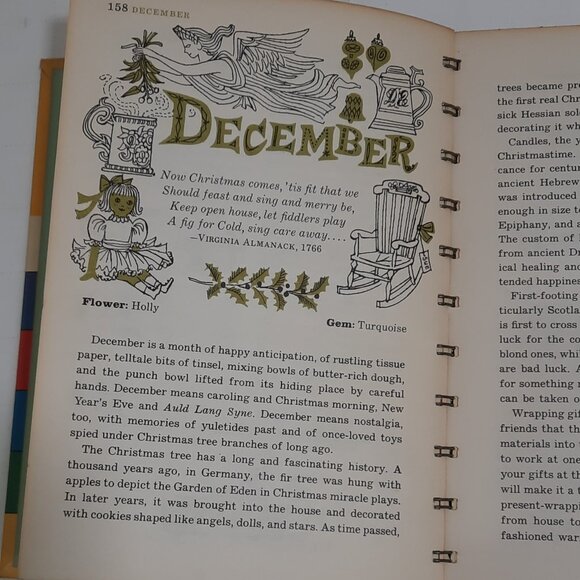 158 DECEMBER
D.E.
DECEMBER
Now Christmas comes, 'tis fit that we
Should feast and sing and merry be,
Keep open house, let fiddlers play
A fig for Cold, sing care away....
—VIRGINIA ALMANACK, 1766
Flower: Holly
Gem: Turquoise
December is a month of happy anticipation, of rustling tissue
paper, telltale bits of tinsel, mixing bowls of butter-rich dough,
and the punch bowl lifted from its hiding place by careful
hands. December means caroling and Christmas morning, New
Year's Eve and Auld Lang Syne. December means nostalgia,
too, with memories of yuletides past and of once-loved toys
spied under Christmas tree branches of long ago.
The Christmas tree has a long and fascinating history. A
thousand years ago, in Germany, the fir tree was hung with
apples to depict the Garden of Eden in Christmas miracle plays.
In later years, it was brought into the house and decorated
with cookies shaped like angels, dolls, and stars. As time passed,
trees became pr
the first real Chr
sick Hessian sol
decorating it wh
Candles, the y
Christmastime.
cance for centur
ancient Hebrew
was introduced
enough in size t
Epiphany, and a
The custom of
from ancient Dr
ical healing and
tended happines
First-footing
ticularly Scotla
is first to cross
luck for the co
blond ones, whi
are bad luck. A
for something
can be taken o
Wrapping gif
friends that th
materials into
to work at one
your gifts at th
will make it a t
present-wrappi
from house to
fashioned war